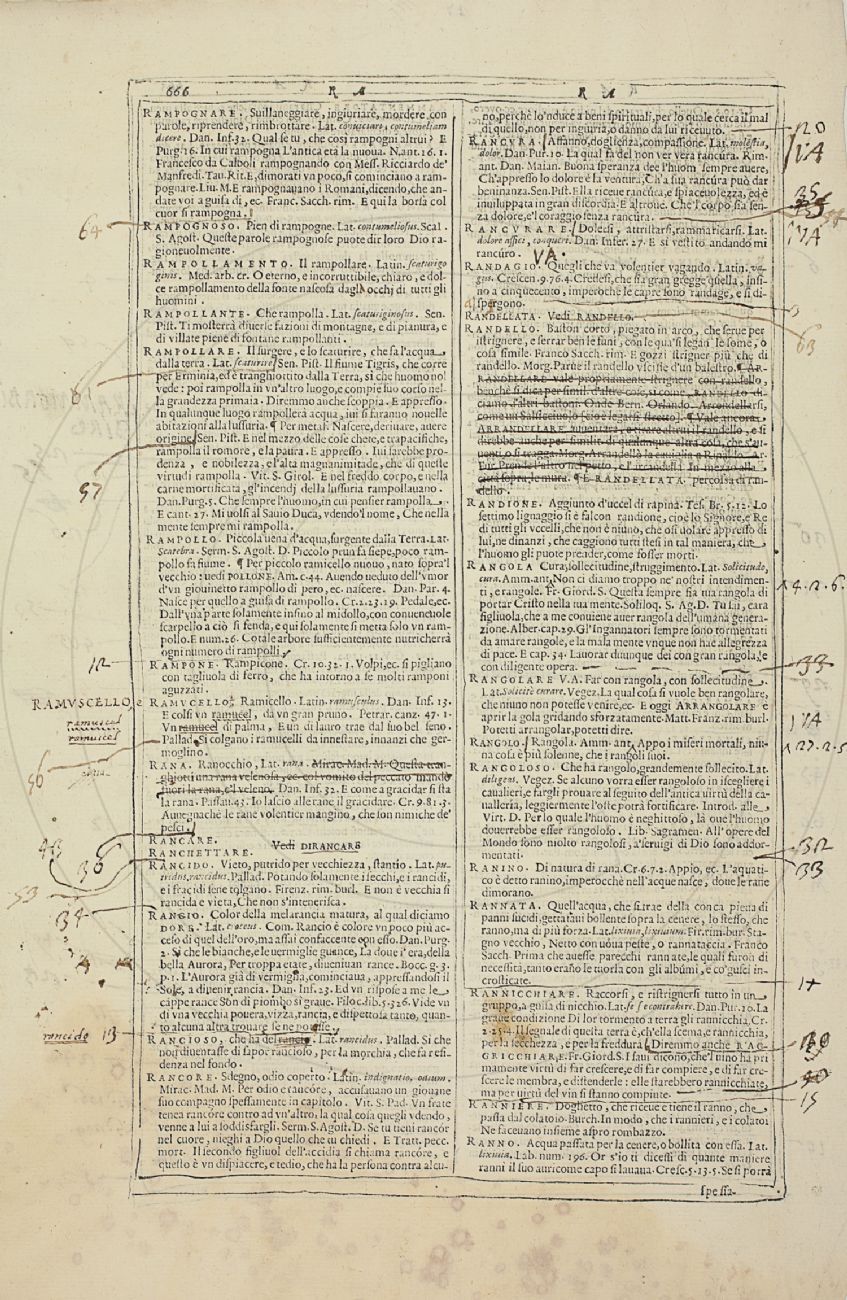 666 R A R A
RAMPOGNARE. Suillaneggiare, ingiuriare, mordere con
parole, riprendere, rimbrottare. Lat. conuiciari, contumeliam
dicere. Dan. Inf. 32. Qual se tu, che così rampogni altrui? E
Purg. 16. In cui rampogna L'antica età la nuoua. N. ant. 16. 1.
Francesco da Calboli rampognando con Mess. Ricciardo de'
Manfredi. Tau. Rit. E, dimorati vn poco, si cominciano a ram-
pognare. Liu. M. E rampognauano i Romani, dicendo, che an-
date voi a guisa di, ec. Franc. Sacch. rim. E qui la borsa col
cuor si rampogna.
64
RAMPOGNOSO. Pien di rampogne. Lat. contumeliosus. Scal.
S. Agost. Queste parole rampognose puote dir loro Dio ra-
gioneuolmente.
RAMPOLLAMENTO. Il rampollare. Latin. scaturigo
ginis. Med. arb. cr. O eterno, e incorruttibile, chiaro, e dol-
ce rampollamento della fonte nascosa dagl'occhj di tutti gli
huomini.
RAMPOLLANTE. Che rampolla. Lat. scaturiginosus. Sen.
Pist. Ti mosterrà diuerse fazioni di montagne, e di pianura, e
di villate piene di fontane rampollanti.
RAMPOLLARE. Il surgere, e lo scaturire, che fa l'acqua
dalla terra. Lat. scaturire. Sen. Pist. Il fiume Tigris, che corre
per Erminia, ed è tranghiottito dalla Terra, sì che huomo nol
vede: poi rampolla in vn'altro luogo, e compie suo corso nel-
la grandezza primaia. Diremmo anche scoppia. E appresso.
In qualunque luogo rampollerà acqua, iui si faranno nouelle
abitazioni alla lussuria. ¶ Per metaf. Nascere, deriuare, auere
origine. Sen. Pist. E nel mezzo delle cose chete, e trapacifiche,
rampolla il romore, e la paura. E appresso. Iui sarebbe pro-
denza, e nobilezza, e l'alta magnanimitade, che di queste
virtudi rampolla. Vit. S. Girol. E nel freddo corpo, e nella
carne mortificata, gl'incendj della lussuria rampollauano.
Dan. Purg. 5. Che sempre l'huomo, in cui pensier rampolla.
E cant. 27. Mi uolsi al Sauio Duca, vdendo'l nome, Che nella
mente sempre mi rampolla.
57
RAMPOLLO. Piccola uena d'acqua, surgente dalla Terra. Lat.
Scatebra. Serm. S. Agost. D. Piccolo prun fa siepe, poco ram-
pollo fa fiume. ¶ Per piccolo ramicello nuouo, nato sopra'l
vecchio: uedi POLLONE. Am. c. 44. Auendo ueduto dell'vmor
d'vn giouinetto rampollo di pero, ec. nascere. Dan. Par. 4.
Nasce per quello a guisa di rampollo. Cr. 2. 23. 19. Pedale, ec.
Dall'vna parte solamente infino al midollo, con conueneuole
scarpello a ciò si fenda, e qui solamente si metta solo vn ram-
pollo. E num. 26. Cotale arbore sufficientemente nutricherrà
ogni numero di rampolli.
12
RAMPONE. Rampicone. Cr. 10. 32. 1. Volpi, ec. si pigliano
con tagliuola di ferro, che ha intorno a se molti ramponi
aguzzati.
RAMVSCELLO, e
RAMVCELLO. Ramicello. Latin. ramusculus. Dan. Inf. 13.
E colsi vn ramucel, da vn gran pruno. Petrar. canz. 47. 1.
ramuscel
Vn ramucel di palma, E un di lauro trae dal suo bel seno.
ramuscel
Pallad. Si colgano i ramucelli da innestare, innanzi che ger-
moglino.
56
RANA. Ranocchio, Lat. rana. Mirac. Mad. M. Questa tran-
ghiotti una rana velenosa, ec. col vomito del peccato mandò
fuori la rana, e'l veleno. Dan. Inf. 32. E come a gracidar si sta
la rana. Passau. 43. Io lascio alle rane il gracidare. Cr. 9. 81. 3.
Auuegnachè le rane volentier mangino, che son nimiche de'
pesci.
RANCARE.
RANCHETTARE. Vedi DIRANCARE
43
36
53
RANCIDO. Vieto, putrido per vecchiezza, stantio. Lat. pu-
tridus, rancidus. Pallad. Potando solamente i secchi, e i rancidi,
e i fracidi sene tolgano. Firenz. rim. burl. E non è vecchia sì
rancida e vieta, Che non s'intenerisca.
34
RANCIO. Color della melarancia matura, al qual diciamo
DORE. Lat. croceus. Com. Rancio è colore vn poco più ac-
ceso di quel dell'oro, ma assai confaccente con esso. Dan. Purg.
2. Sì che le bianche, e le uermiglie guance, La doue i' era, della
bella Aurora, Per troppa etate, diueniuan rance. Bocc. g. 3.
p. 1. L'Aurora già di vermiglia, cominciaua, appressandosi il
Sole, a diuenir rancia. Dan. Inf. 23. Ed vn rispose a me le
cappe rance Son di piombo sì graue. Filoc. lib. 5. 326. Vide vn
dì vna vecchia pouera, vizza, rancia, e dispettosa tanto, quan-
to alcuna altra trouare se ne potesse.
rancido 13
RANCIOSO, che ha del rancio. Lat. rancidus. Pallad. Sì che
non diuentasse di sapor rancioso, per la morchia, che fa resi-
denza nel fondo.
RANCORE. Sdegno, odio coperto. Latin. indignatio, odium.
Mirac. Mad. M. Per odio e rancore, accusauano un giouane
suo compagno spessamente in capitolo. Vit. S. Pad. Vn frate
tenea rancore contro ad vn'altro, la qual cosa quegli vdendo,
venne a lui a soddisfargli. Serm. S. Agost. D. Se tu tieni rancor
nel cuore, nieghi a Dio quello che tu chiedi. E Tratt. pecc.
mort. Il secondo figliuol dell'accidia si chiama rancore, e
questo è vn dispiacere, e tedio, che ha la persona contra alcu-
no, perchè lo 'nduce a beni spirituali, per lo quale cerca il mal
di quello, non per ingiuria, o danno da lui riceuuto.
120
RANCVRA. Affanno, doglienza, compassione. Lat. molestia,
VA
dolor. Dan. Pur. 10. La qual fa del non ver vera rancura. Rim.
ant. Dan. Maian. Buona speranza dee l'huom sempre auere,
Ch'appresso lo dolore è sa ventura, Ch'a sua rancura può dar
beninanza. Sen. Pist. Ella riceue rancura, e spiaceuolezza, ed è
inuiluppata in gran discordia. E altroue. Che'l corpo sia sen-
za dolore, e'l coraggio senza rancura.
35
RANCVRARE. Dolersi, attristarsi, rammaricarsi. Lat.
VA
dolore affici, conqueri. Dan. Infer. 27. E sì vestito andando mi
rancuro. VA.
RANDAGIO. Quegli che va volentier vagando. Latin. va-
gus. Crescen. 9. 76. 4. Credesi, che sia gran gregge quella, infi-
no a cinquecento, imperochè le capre sono randage, e si di-
spergono.
RANDELLATA. Vedi RANDELLO.
63
RANDELLO. Baston corto, piegato in arco, che serue per
istrignere, e serrar ben le funi, con le qua' si legan le some, o
cosa simile. Franco Sacch. rim. E gozzi strigner più che di
randello. Morg. Parue il randello vscisse d'un balestro. ¶ AR-
RANDELLARE vale propriamente strignere con randello,
benchè si dica per simil. d'altre cose, sì come, RANDELLO di-
ciamo d'altri bastoni. Onde Bern. Orlando. Arrandellarsi,
come un Salsicciuolo (cioè legarsi stretto). ¶ Vale ancora
ARRANDELLARE auuentare, e tirare altrui il randello, e si
direbbe anche per similit. di qualunque altra cosa, che s'au-
uenti, o si tragga. Morg. Arrandellò la cauiglia a Rinaldo. Ar.
Fur. Prende l'altro nel petto, e l'arrandella In mezzo alla
città sopra le mura. ¶ E RANDELLATA percossa di ran-
dello.
RANDIONE. Aggiunto d'uccel di rapina. Tes. Br. 5. 12. Lo
settimo lignaggio si è falcon randione, cioè lo Signore, e Re
di tutti gli vccelli, che non è niuno, che osi dolare appresso di
lui, ne dinanzi, che caggiono tutti stesi in tal maniera, che
l'huomo gli puote prender, come fosser morti.
RANGOLA Cura, sollecitudine, struggimento. Lat. Solicitudo,
cura. Amm. ant. Non ci diamo troppo ne' nostri intendimen-
4. 2. 6.
ti, e rangole. Fr. Giord. S. Questa sempre sia tua rangola di
portar Cristo nella tua mente. Soliloq. S. Ag. D. Tu sii, cara
figliuola, che a me conuiene auer rangola dell'umana genera-
zione. Alber. cap. 29. Gl'Ingannatori sempre sono tormentati
da amare rangole, e la mala mente vnque non hae allegrezza
di pace. E cap. 34. Lauorar dunque dei con gran rangola, e
con diligente opera.
33
RANGOLARE V. A. Far con rangola, con sollecitudine.
Lat. Solicitè curare. Vegez. La qual cosa si vuole ben rangolare,
che niuno non potesse venire, ec. E oggi ARRANGOLARE è
aprir la gola gridando sforzatamente. Matt. Franz. rim. burl.
VA
Potetti arrangolar, potetti dire.
RANGOLO. Rangola. Amm. ant. Appo i miseri mortali, niu-
27. 2. 5
na cosa è più solenne, che i rangoli suoi.
RANGOLOSO. Che ha rangolo, grandemente sollecito. Lat.
diligens. Vegez. Se alcuno vorrà esser rangoloso in iscegliere i
caualieri, e fargli prouare al seguito dell'antica uirtù della ca-
ualleria, leggiermente l'oste potrà fortificare. Introd. alle
Virt. D. Per lo quale l'huomo è neghittoso, là oue l'huomo
douerrebbe esser rangoloso. Lib. Sagramen. All'opere del
Mondo sono molto rangolosi, a' seruigi di Dio sono addor-
mentati.
132
33
RANINO. Di natura di rana. Cr. 6. 7. 2. Appio, ec. L'aquati-
co è detto ranino, imperocchè nell'acque nasce, doue le rane
dimorano.
RANNATA. Quell'acqua, che si trae della conca piena di
panni sucidi, gettataui bollente sopra la cenere, lo stesso, che
ranno, ma di più forza. Lat. lixiuia, lixiuium. Fir. rim. bur. Sta-
gno vecchio, Netto con uoua peste, o rannataccia. Franco
Sacch. Prima che auesse parecchi rannate, le quali furon di
necessità, tanto erano le tuorla con gli albumi, e co' gusci in-
crosticate.
14
RANNICCHIARE. Raccorsi, e ristrignersi tutto in un
gruppo, a guisa di nicchio. Lat. se se contrahere. Dan. Pur. 10. La
graue condizione Di lor tormento a terra gli rannicchia. Cr.
2. 25. 4. Il segnale di questa terra è, ch'ella scema, e rannicchia,
per la secchezza, e per la freddura. Diremmo anche RAG-
GRICCHIARE. Fr. Giord. S. I saui dicono, che l'uino ha pri-
mamente virtù di far crescere, e di far compiere, e di far cre-
scere le membra, e distenderle: elle starebbero rannicchiate,
ma per uirtù del vin si stanno compiute.
15
RANNIERE. Doghetto, che riceue e tiene il ranno, che
passa dal colatoio. Burch. In modo, che i rannieri, e i colatoi
Ne faceuano insieme aspro rombazzo.
RANNO. Acqua passata per la cenere, o bollita con essa. Lat.
lixiuia. Lab. num. 196. Or s'io ti dicessi di quante maniere
ranni il suo auricome capo si lauaua. Cresc. 5. 13. 5. Se si porrà
spessa-